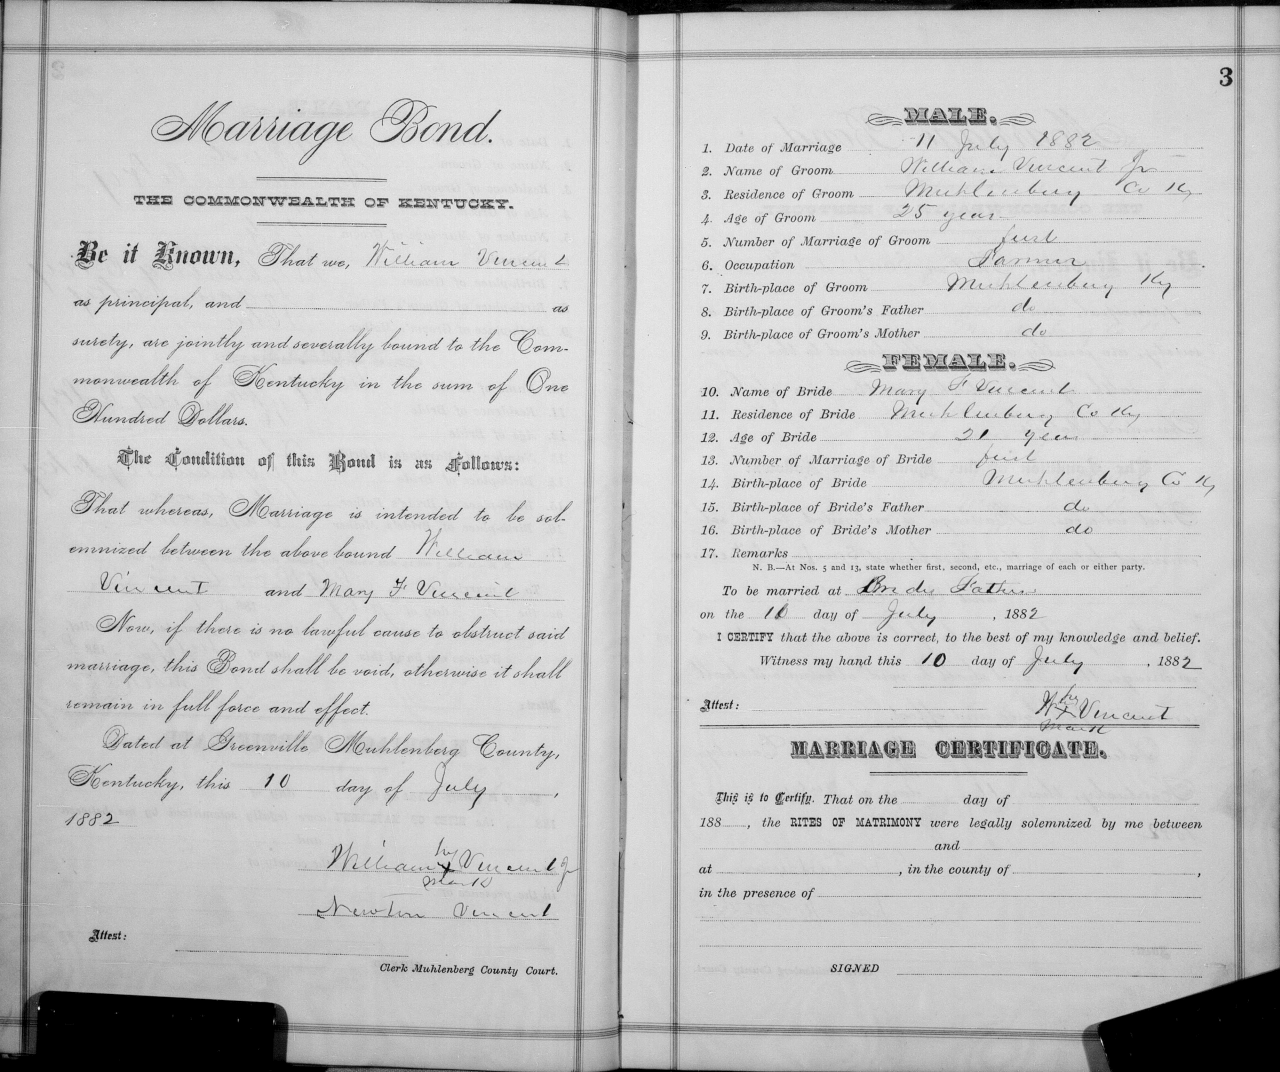 Marriage Bond.
THE COMMONWEALTH OF KENTUCKY.
Be it Known, That we, William Vincent
as principal, and as
surety, are jointly and severally bound to the Com-
monwealth of Kentucky in the sum of One
Hundred Dollars.
The Condition of this Bond is as Follows:
That whereas, Marriage is intended to be sol-
emnized between the above bound William
Vincent and Mary F Vincent
Now, if there is no lawful cause to obstruct said
marriage, this Bond shall be void, otherwise it shall
remain in full force and effect.
Dated at Greenville Muhlenberg County,
Kentucky, this 10 day of July,
1882
his
William x Vincent Jr
mark
Newton Vincent
Attest:
Clerk Muhlenberg County Court.
3
MALE.
1. Date of Marriage 11 July 1882
2. Name of Groom William Vincent Jr
3. Residence of Groom Muhlenberg Co Ky
4. Age of Groom 25 years
5. Number of Marriage of Groom first
6. Occupation Farmer
7. Birth-place of Groom Muhlenberg Ky
8. Birth-place of Groom's Father do
9. Birth-place of Groom's Mother do
FEMALE.
10. Name of Bride Mary F Vincent
11. Residence of Bride Muhlenberg Co Ky
12. Age of Bride 21 years
13. Number of Marriage of Bride first
14. Birth-place of Bride Muhlenberg Co Ky
15. Birth-place of Bride's Father do
16. Birth-place of Bride's Mother do
17. Remarks
N. B.—At Nos. 5 and 13, state whether first, second, etc., marriage of each or either party.
To be married at Brides Fathers
on the 10 day of July, 1882
I CERTIFY that the above is correct, to the best of my knowledge and belief.
Witness my hand this 10 day of July, 1882
his
Attest: W x Vincent
mark
MARRIAGE CERTIFICATE.
This is to Certify. That on the day of
188 , the RITES OF MATRIMONY were legally solemnized by me between
and
at , in the county of ,
in the presence of
SIGNED